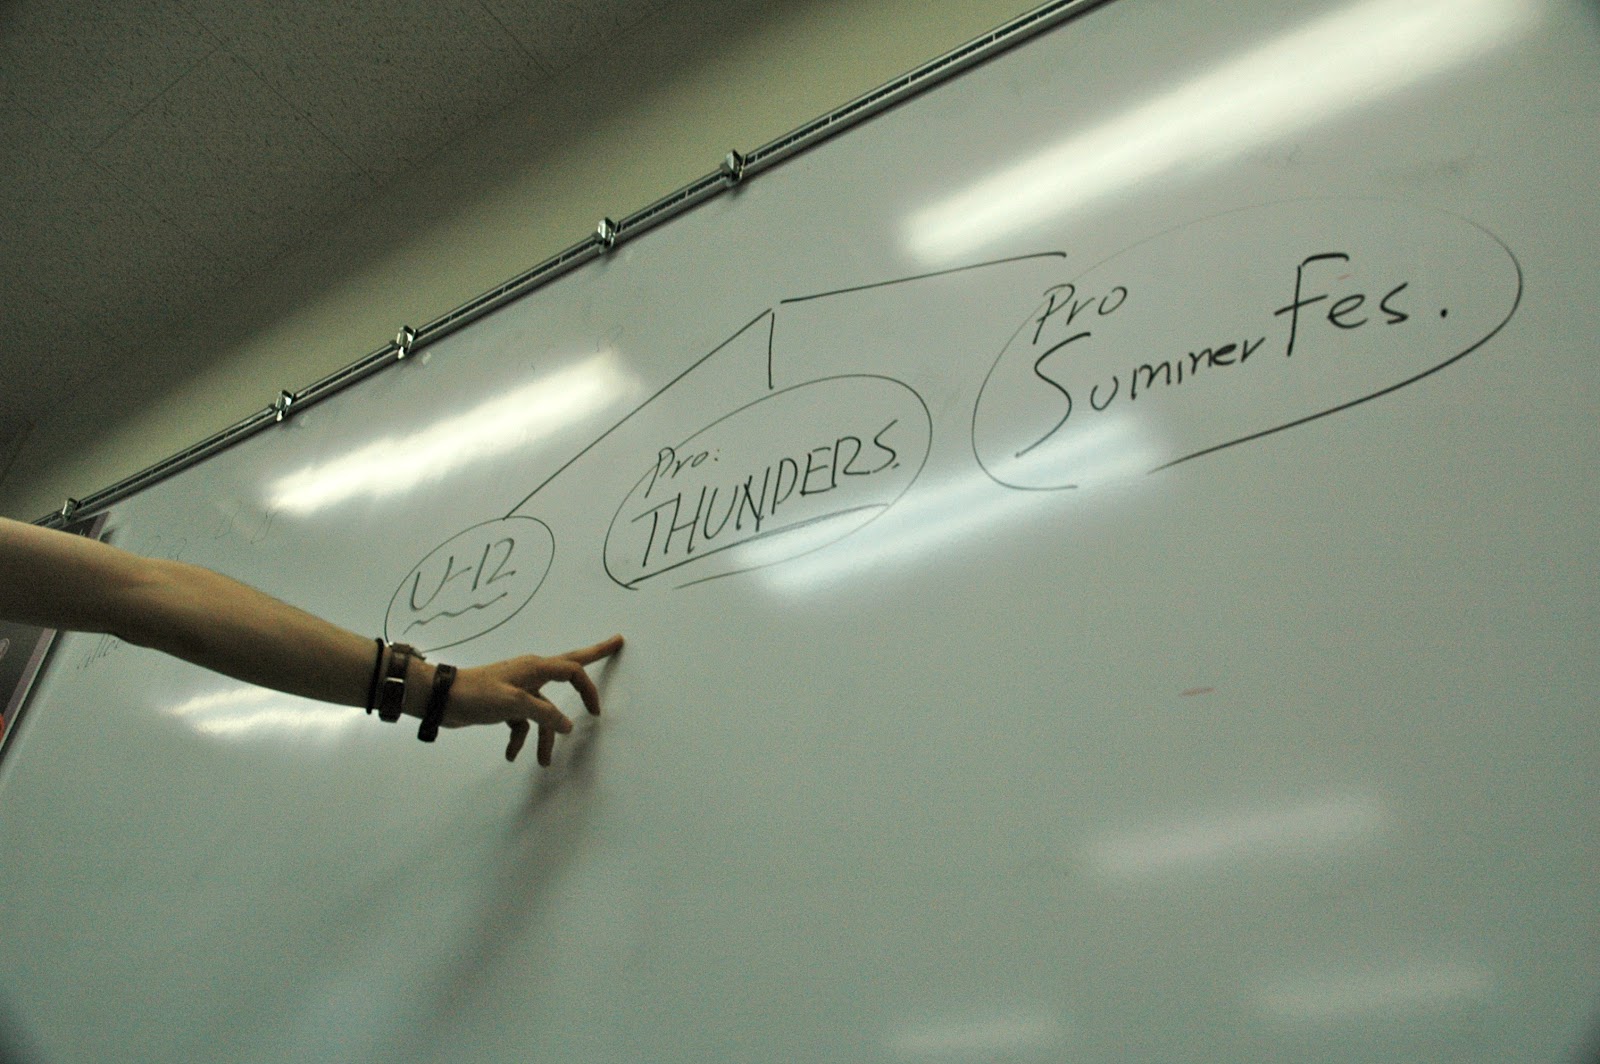 U-12
Pro:
THUNDERS.
Pro
Summer Fes.